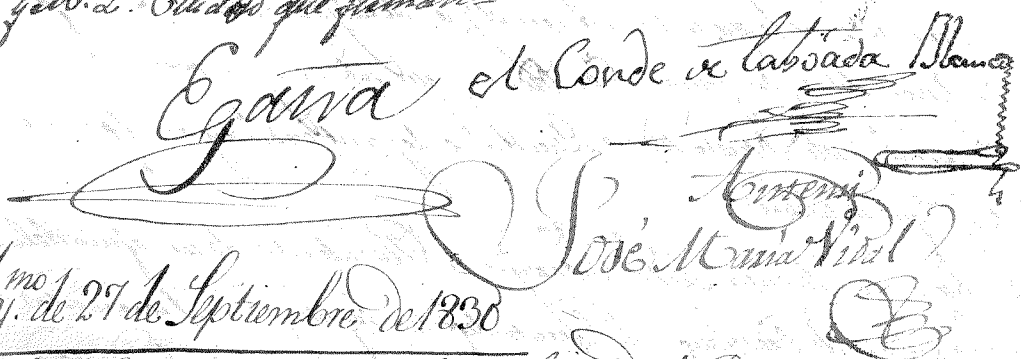 que firman
Egaña el Conde de Taboada Blanco
Antemi
José Maria Vidal
de 27 de Septiembre de 1830